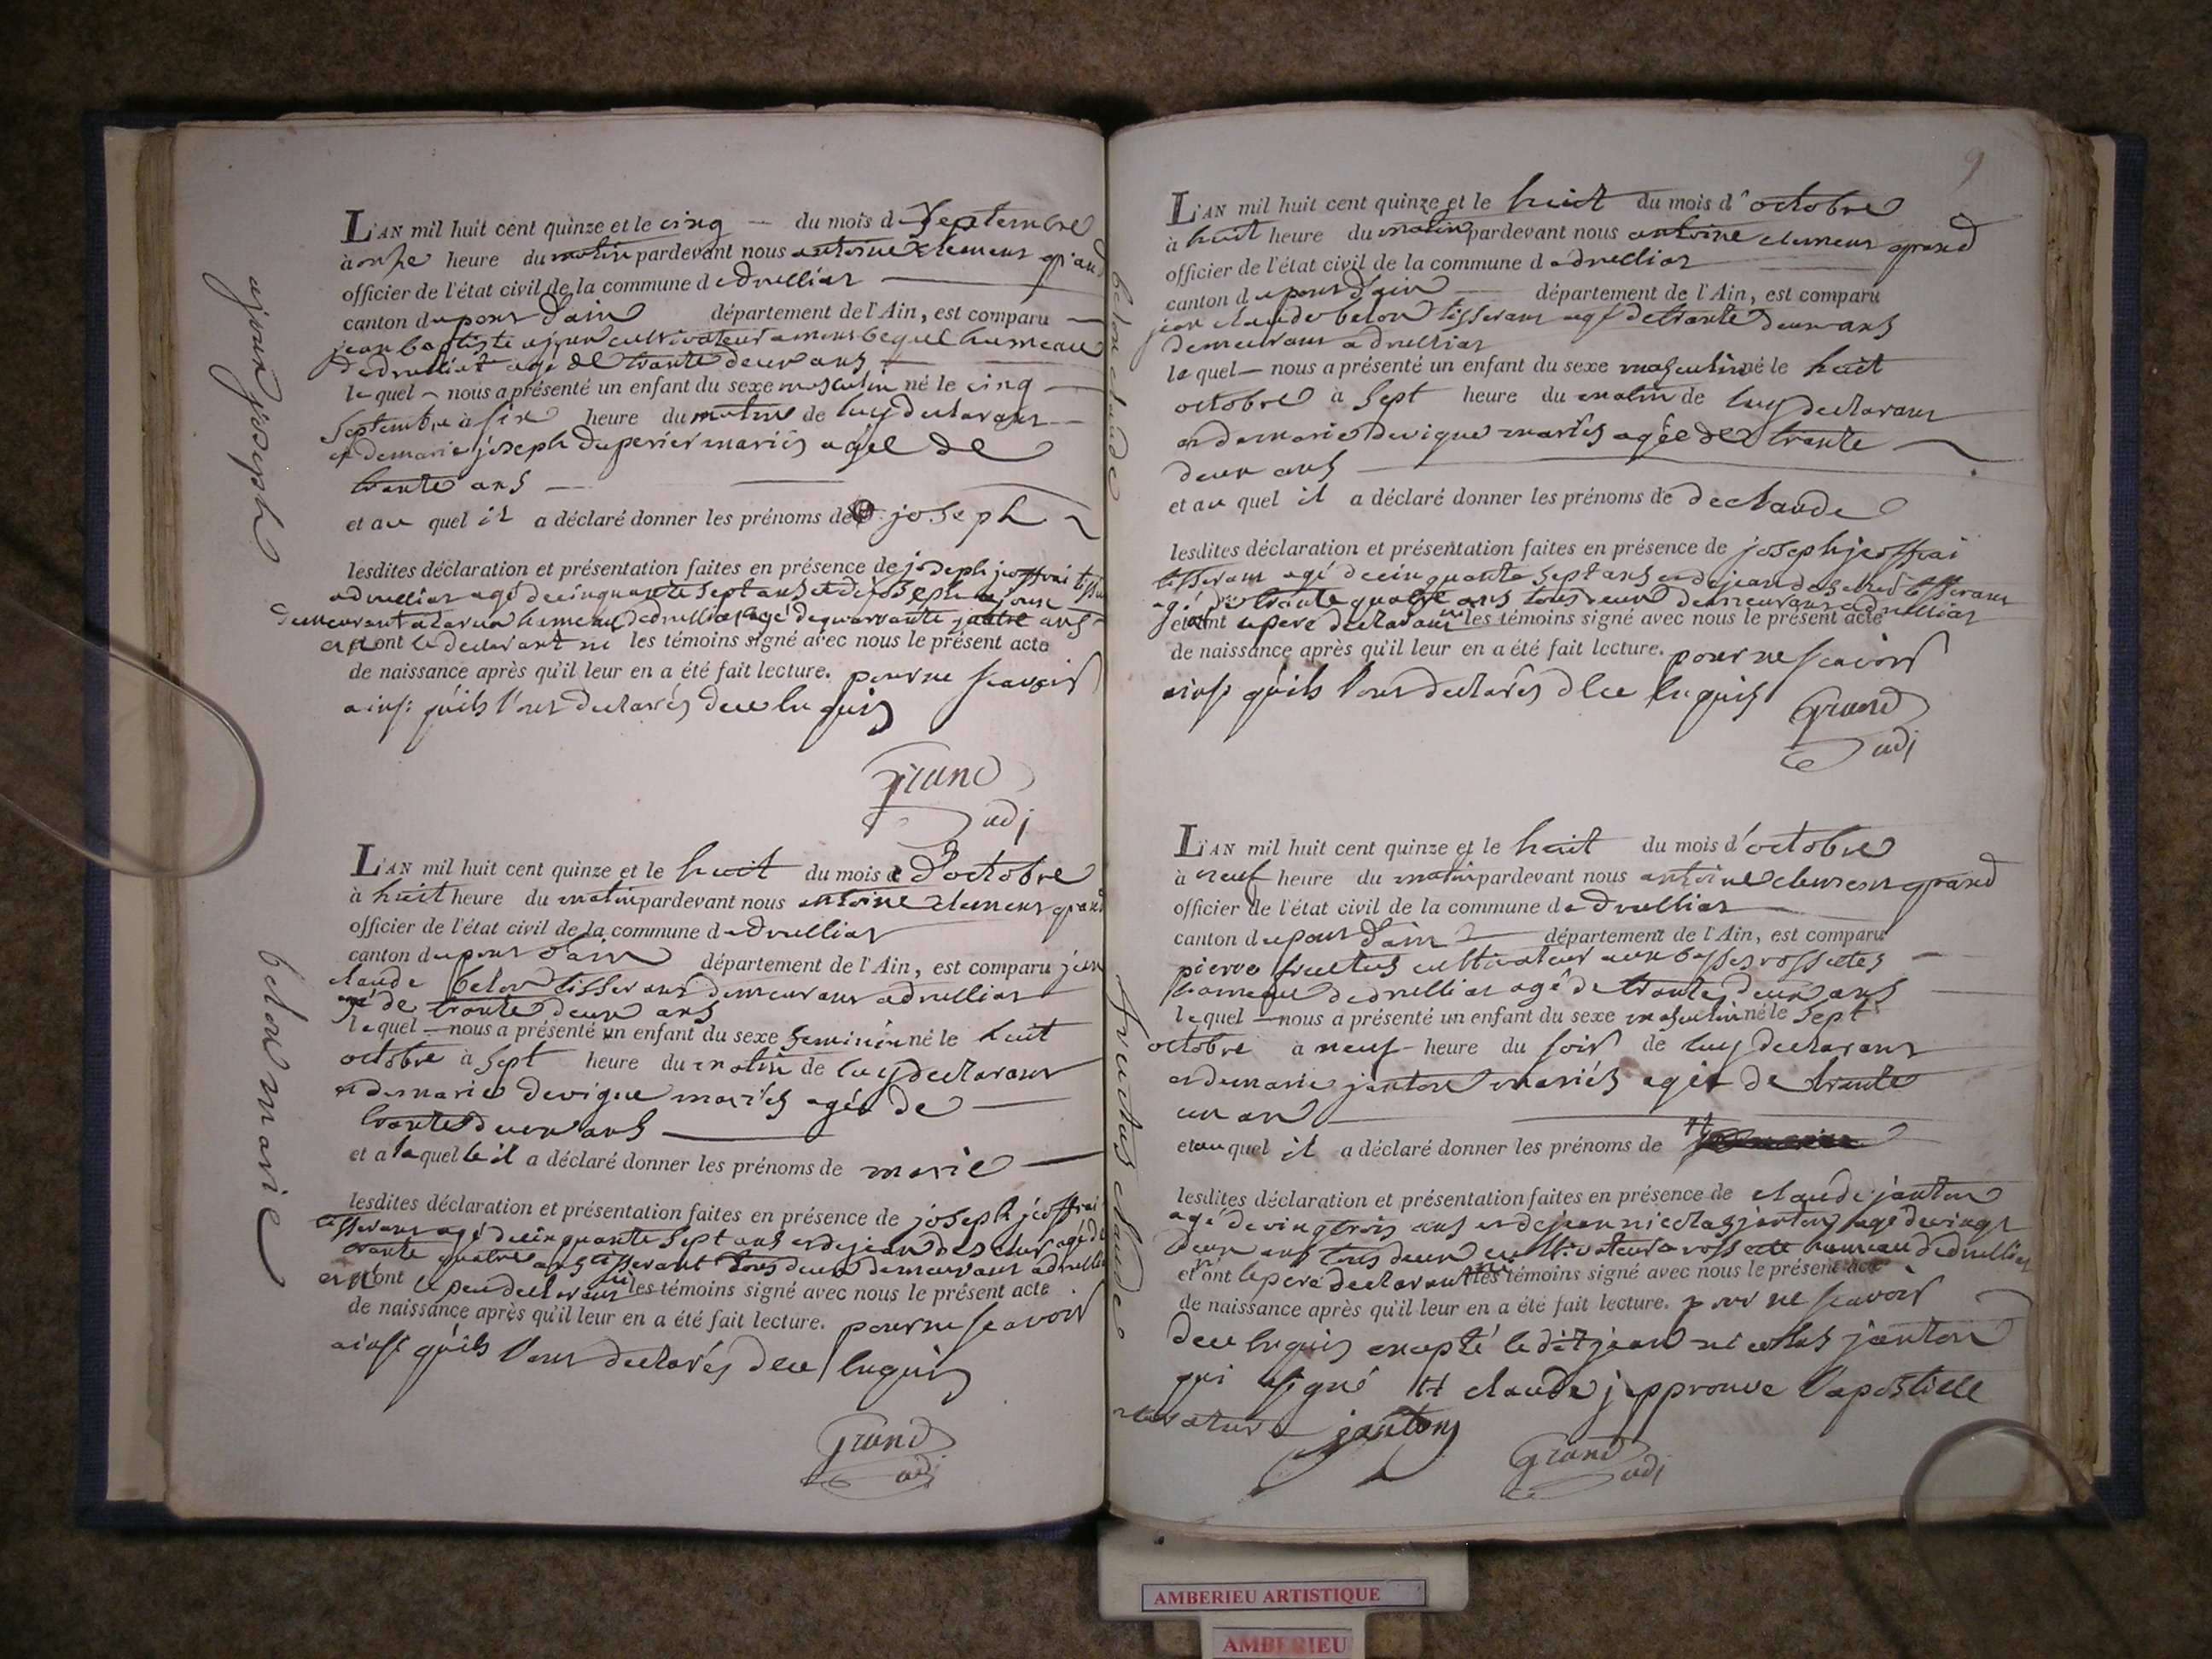 ajoux joseph
L'AN mil huit cent quinze et le cinq du mois d septembre
à onze heure du matin pardevant nous antoine clement grand
officier de l'état civil de la commune de druillat
canton du pont d'ain département de l'Ain, est comparu
jean baptiste ajoux cultivateur hameau
de druillat agé de trante deux ans
le quel nous a présenté un enfant du sexe masculin né le cinq
septembre à six heure du matin de luy declarant
et de marie joseph duperier mariés agée de
trante ans
et au quel il a déclaré donner les prénoms de joseph
lesdites déclaration et présentation faites en présence de joseph jeoffrai
a druillat agé de cinquante sept ans et de joseph ajoux
demeurant hameau de druillat agé de quarante quatre ans
et n'ont le declarant ni les témoins signé avec nous le présent acte
de naissance après qu'il leur en a été fait lecture. pour ne scavoir
ainsi qu'ils l'ont declarés de ce enquis
Grand
adj
belon marie
L'AN mil huit cent quinze et le huit du mois d d'octobre
à huit heure du matin pardevant nous antoine clement grand
officier de l'état civil de la commune de druillat
canton du pont d'ain département de l'Ain, est comparu jean
claude belon tisserant demeurant a druillat
agé de trante deux ans
le quel nous a présenté un enfant du sexe feminin né le huit
octobre à sept heure du matin de luy declarant
et de marie devigue mariés agée de
trante deux ans
et a laquelle il a déclaré donner les prénoms de marie
lesdites déclaration et présentation faites en présence de joseph jeoffrai
tisserant agé de cinquante sept ans et de jean agé de
trante quatre ans tisserant tous deux demeurant a druillat
et n'ont le pere declarant ni les témoins signé avec nous le présent acte
de naissance après qu'il leur en a été fait lecture. pour ne scavoir
ainsi qu'ils l'ont declarés de ce enquis
Grand
adj
9
belon claude
L'AN mil huit cent quinze et le huit du mois d'octobre
à huit heure du matin pardevant nous antoine clement grand
officier de l'état civil de la commune de druillat
canton du pont d'ain département de l'Ain, est comparu
jean claude belon tisserant agé de trante deux ans
demeurant a druillat
le quel nous a présenté un enfant du sexe masculin né le huit
octobre à sept heure du matin de luy declarant
et de marie devigue mariés agée de trante
deux ans
et au quel il a déclaré donner les prénoms de de claude
lesdites déclaration et présentation faites en présence de joseph jeoffrai
tisserant agé de cinquante sept ans et de jean tisserant
agé de trante quatre ans tous deux demeurant a druillat
et n'ont le pere declarant ni les témoins signé avec nous le présent acte
de naissance après qu'il leur en a été fait lecture. pour ne scavoir
ainsi qu'ils l'ont declarés de ce enquis
Grand
adj
fructus claude
L'AN mil huit cent quinze et le huit du mois d'octobre
à neuf heure du matin pardevant nous antoine clement grand
officier de l'état civil de la commune de druillat
canton du pont d'ain département de l'Ain, est comparu
pierre fructus cultivateur aux basses rossettes
hameau de druillat agé de trante deux ans
le quel nous a présenté un enfant du sexe masculin né le sept
octobre à neuf heure du soir de luy declarant
et de marie janton mariés agée de trante
un an
et au quel il a déclaré donner les prénoms de
lesdites déclaration et présentation faites en présence de claude janton
agé de vingt trois ans et de jean nicolas janton agé de vingt
deux ans tous deux cultivateur a rossette hameau de druillat
et n'ont le pere declarant ni les témoins signé avec nous le présent acte
de naissance après qu'il leur en a été fait lecture. pour ne scavoir
de ce enquis excepté le dit jean nicolas janton
qui a signé claude japprouve l'apostille
et rature janton
Grand
adj
AMBERIEU ARTISTIQUE
AMBERIEU